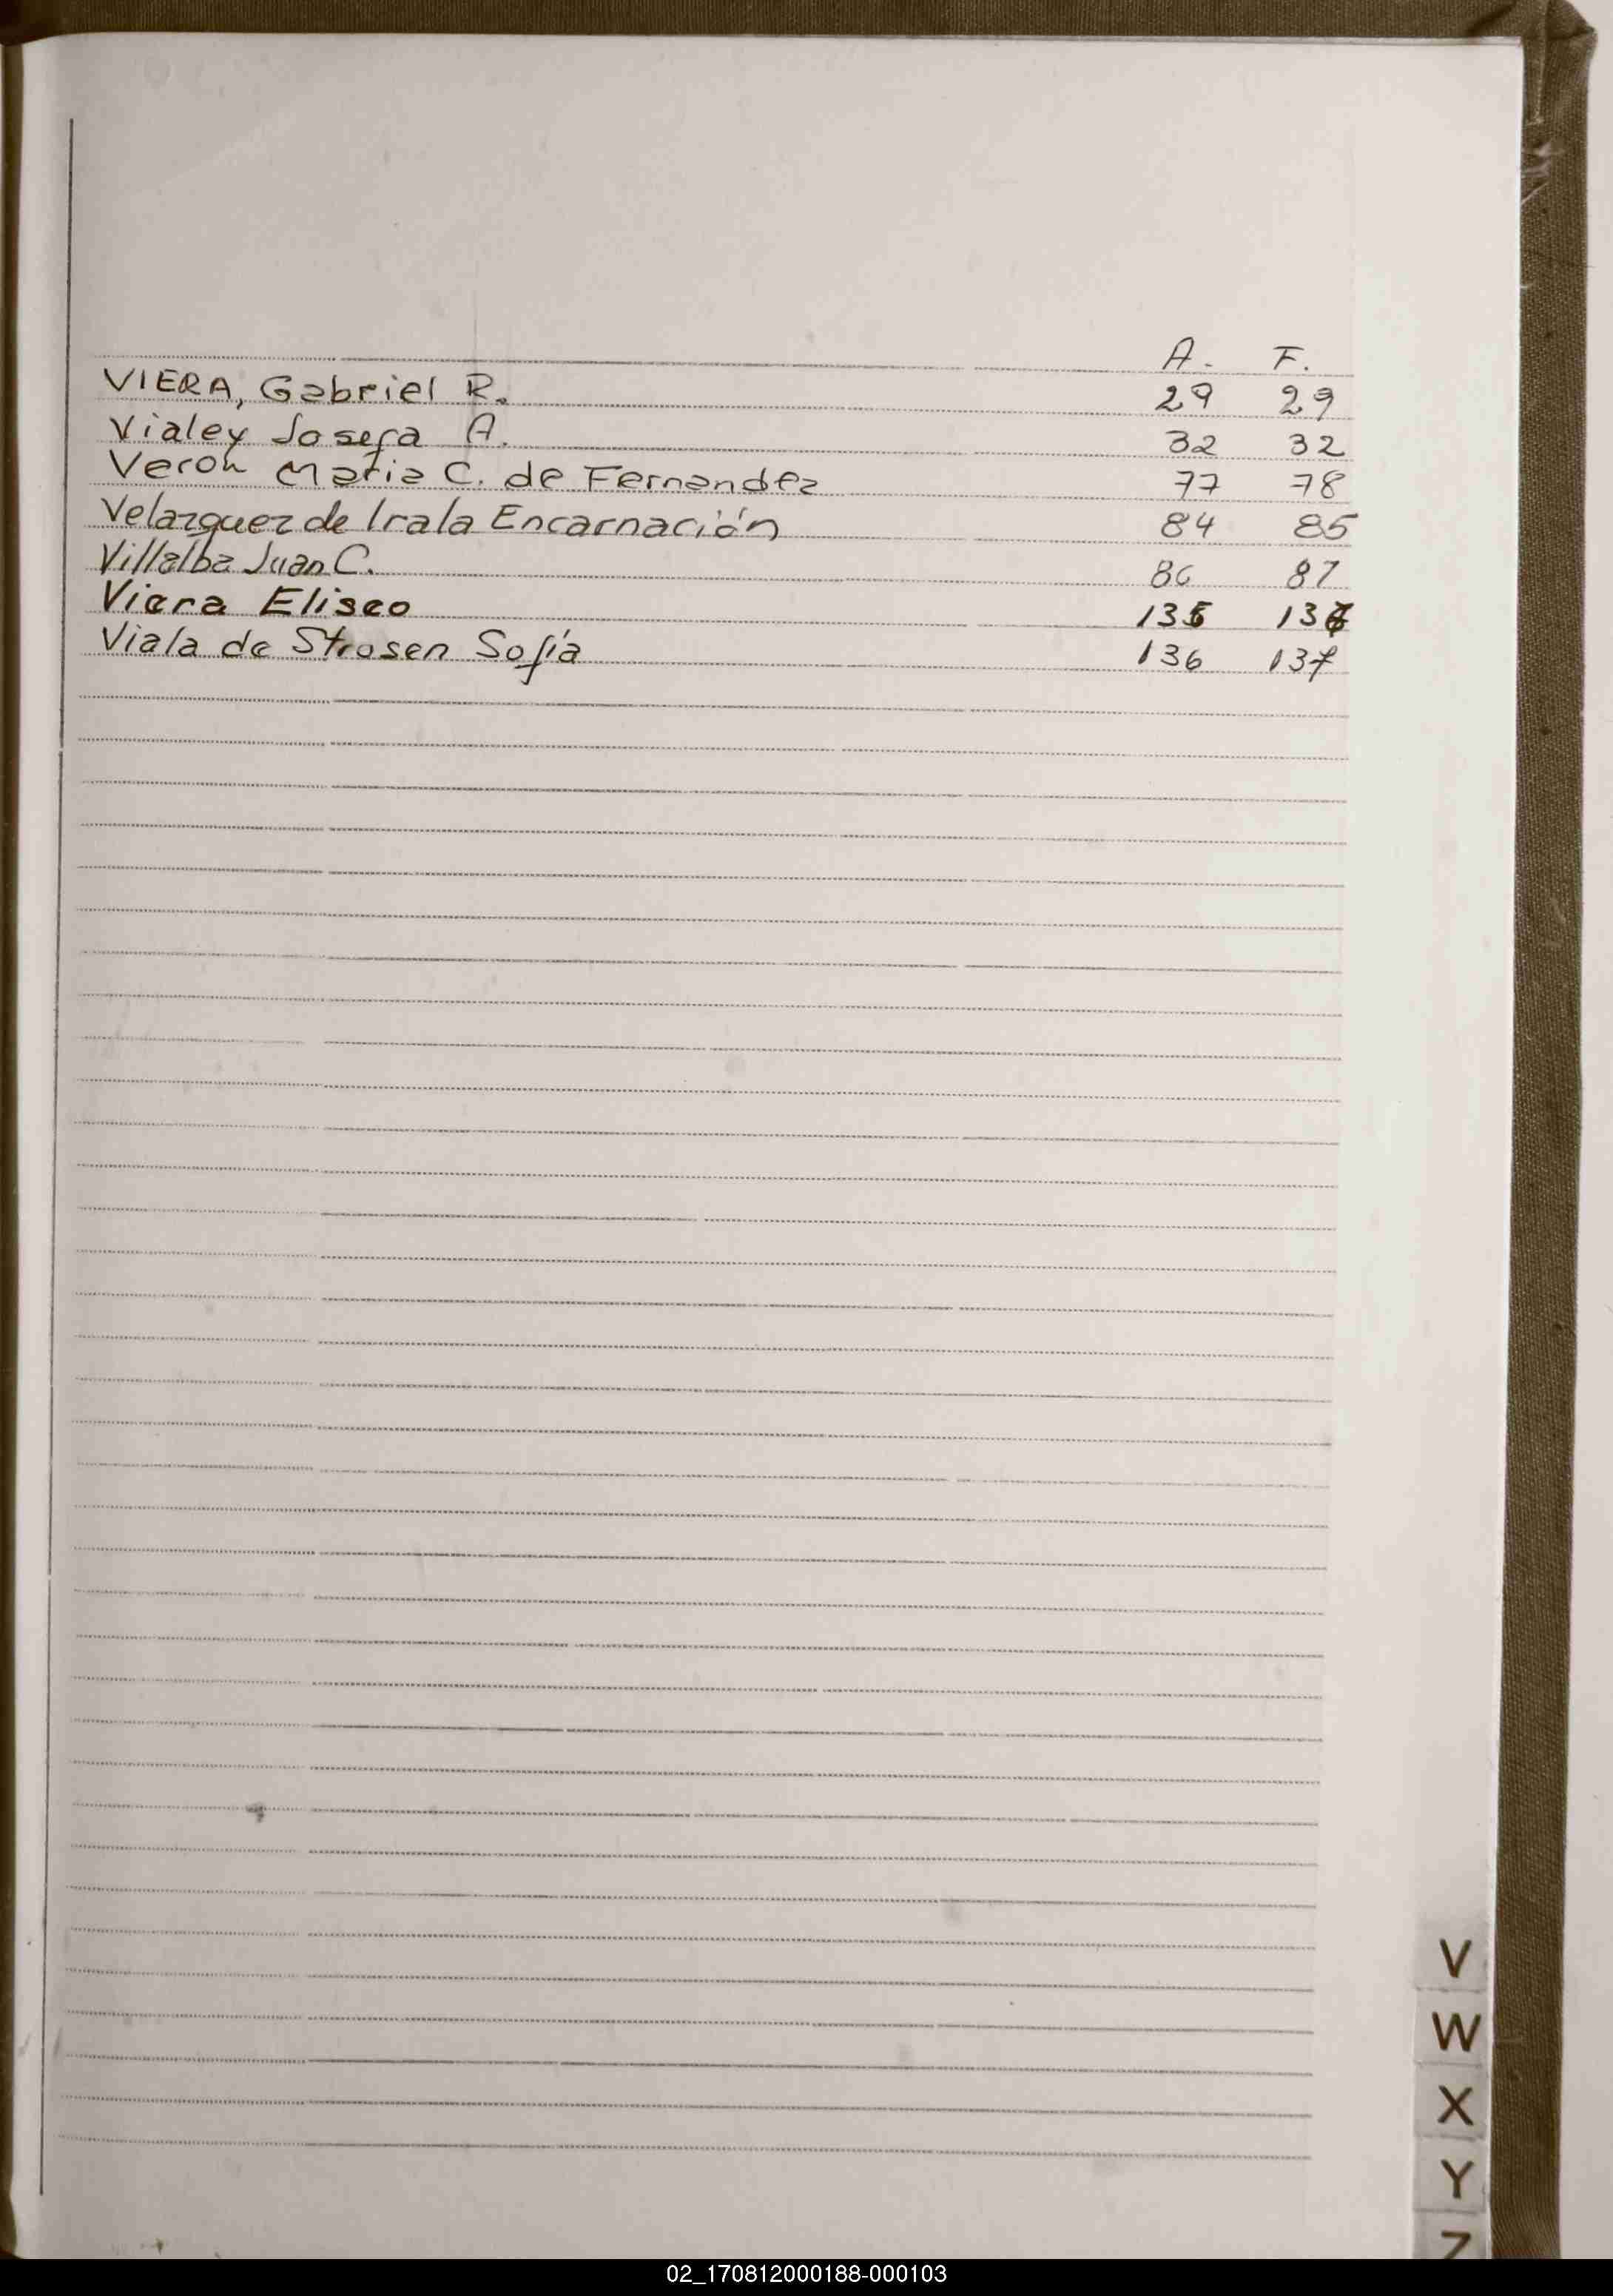 A. F.
VIERA, Gabriel R. 29 29
Vialey Josefa A. 32 32
Veron Maria C. de Fernandez 77 78
Velazquez de Irala Encarnación 84 85
Villalba Juan C. 86 87
Viera Eliseo 135 136
Viala de Strosen Sofía 136 137
V
W
X
Y
Z
02_170812000188-000103